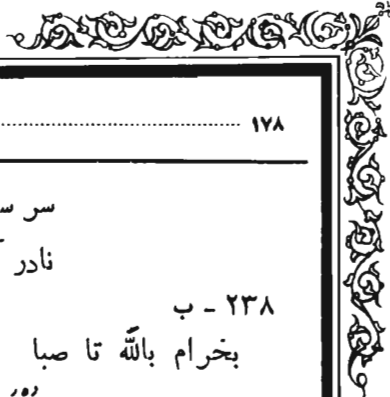 ۱۷۸
سر
نادر
۲۳۸ - ب
بخرام بالله تا صبا